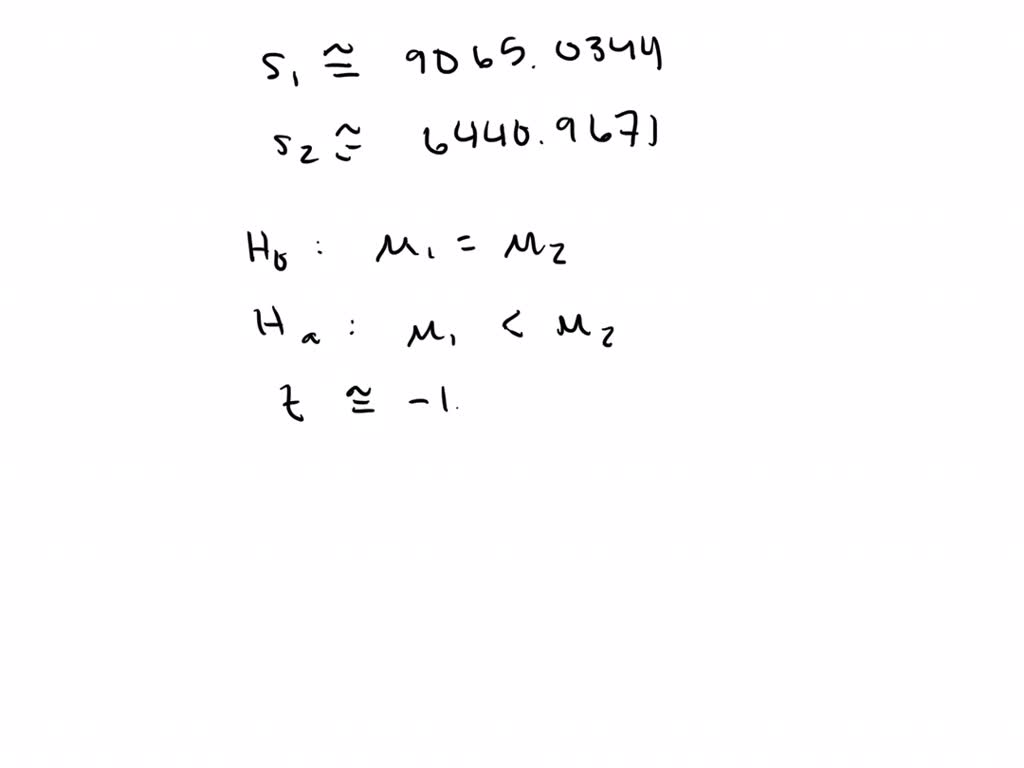 s₁ ≅ 9065.0344
s₂ ≅ 6440.9671
H₀ : μ₁ = μ₂
Hₐ : μ₁ < μ₂
t ≅ -1.